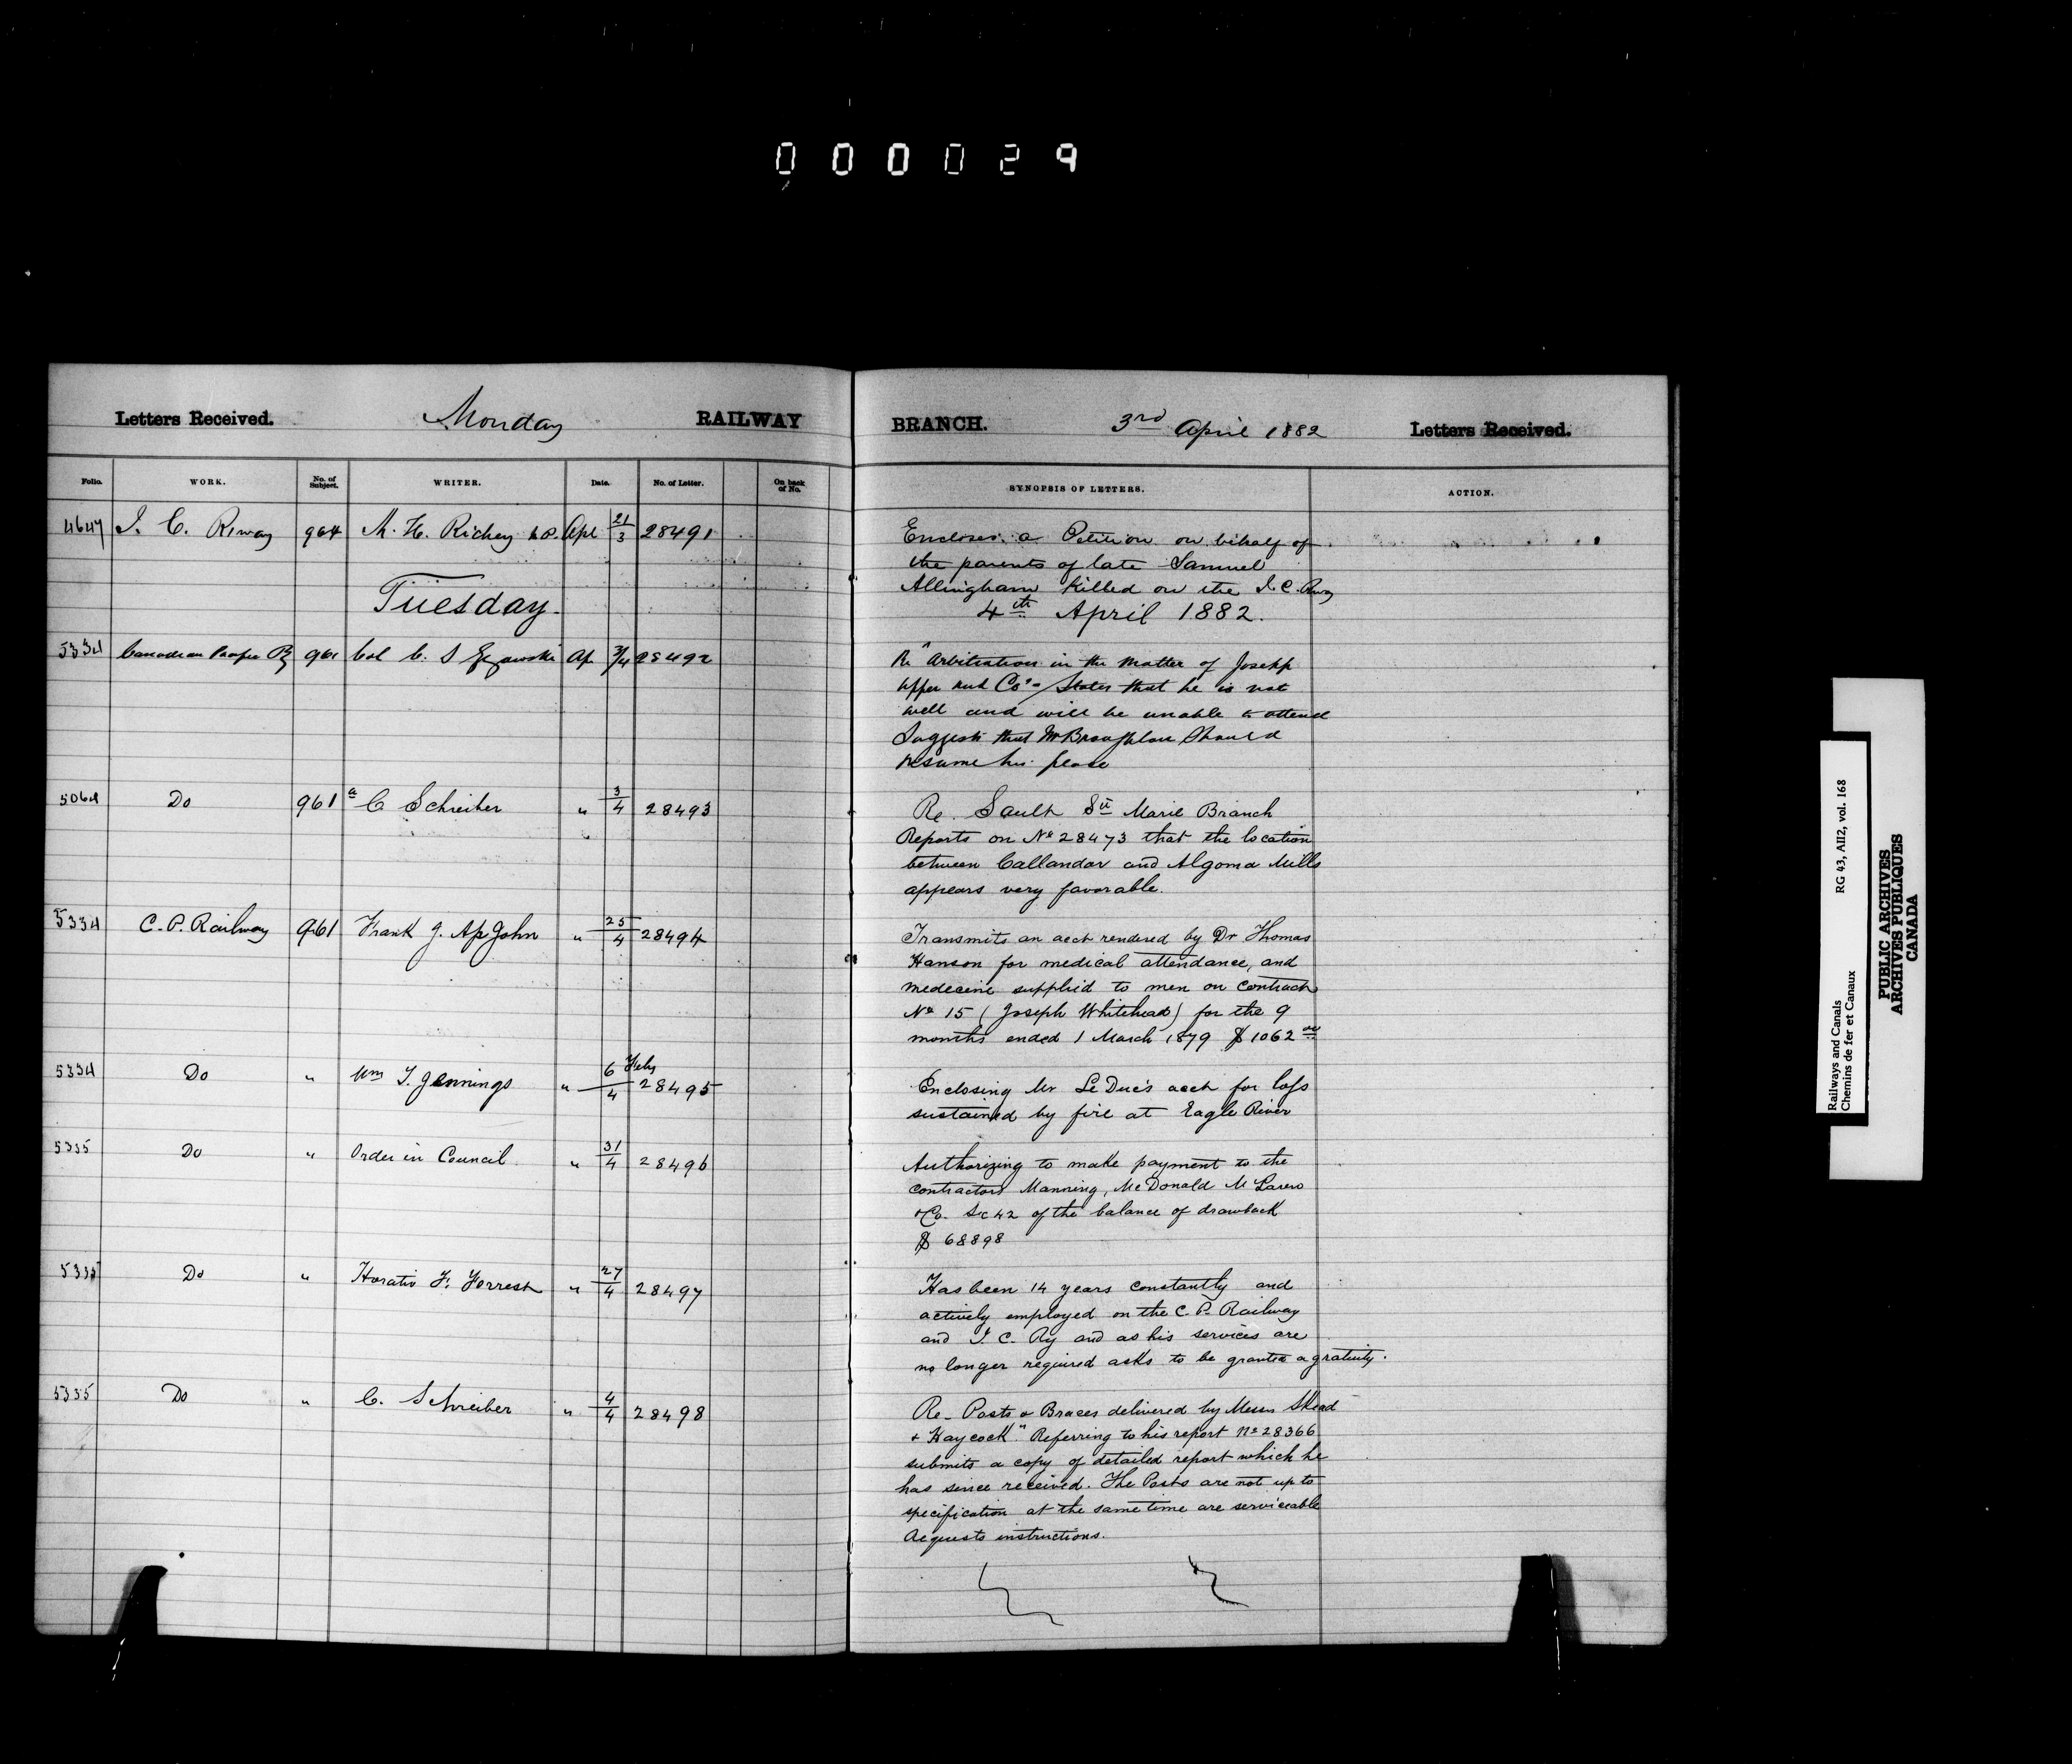 000029
Letters Received. Monday RAILWAY BRANCH. 3rd April 1882 Letters Received.
Folio. WORK. No. of Subject. WRITER. Date. No. of Letter. On back of No. SYNOPSIS OF LETTERS. ACTION.
4647 I. C. Rway 964 M. H. Richey M.P. Apl 21/3 28491 Encloses a Petition on behalf of
the parents of late Samuel
Allingham Killed on the I. C. Rway
Tuesday. 4th April 1882.
5334 Canadian Pacific Ry 961 Col C. S Gzowski Ap 3/4 28492 Re "Arbitration in the matter of Joseph
Upper and Co" States that he is not
well and will be unable to attend
Suggests that Mr Broughton Should
resume his place
5064 Do 961a C Schreiber " 3/4 28493 Re. Sault Ste Marie Branch
Reports on No 28473 that the location
between Callandar and Algoma Mills
appears very favorable.
5334 C. P. Railway 961 Frank J. ApJohn " 25/4 28494 Transmits an acct rendered by Dr Thomas
Hanson for medical attendance, and
medecine supplied to men on Contract
No 15 (Joseph Whitehead) for the 9
months ended 1 March 1879 $1062 00
5334 Do " Wm T. Jennings " 6 Feby/4 28495 Enclosing Mr Le Duc's acct for loss
sustained by fire at Eagle River
5335 Do " Order in Council " 31/4 28496 Authorizing to make payment to the
contractors Manning, McDonald McLaren
& Co. Sc 42 of the balance of drawback
$ 68898
5335 Do " Horatio F. Forrest " 27/4 28497 Has been 14 years constantly and
actively employed on the C. P. Railway
and I. C. Ry and as his services are
no longer required asks to be granted a gratuity.
5335 Do " C. Schreiber " 4/4 28498 Re - Posts & Braces delivered by Messrs Skead
& Haycock" Referring to his report No 28366
submits a copy of detailed report which he
has since received. The Posts are not up to
specification at the same time are serviceable
Requests instructions.
Railways and Canals RG 43, AII2, vol. 168
Chemins de fer et Canaux
PUBLIC ARCHIVES
ARCHIVES PUBLIQUES
CANADA